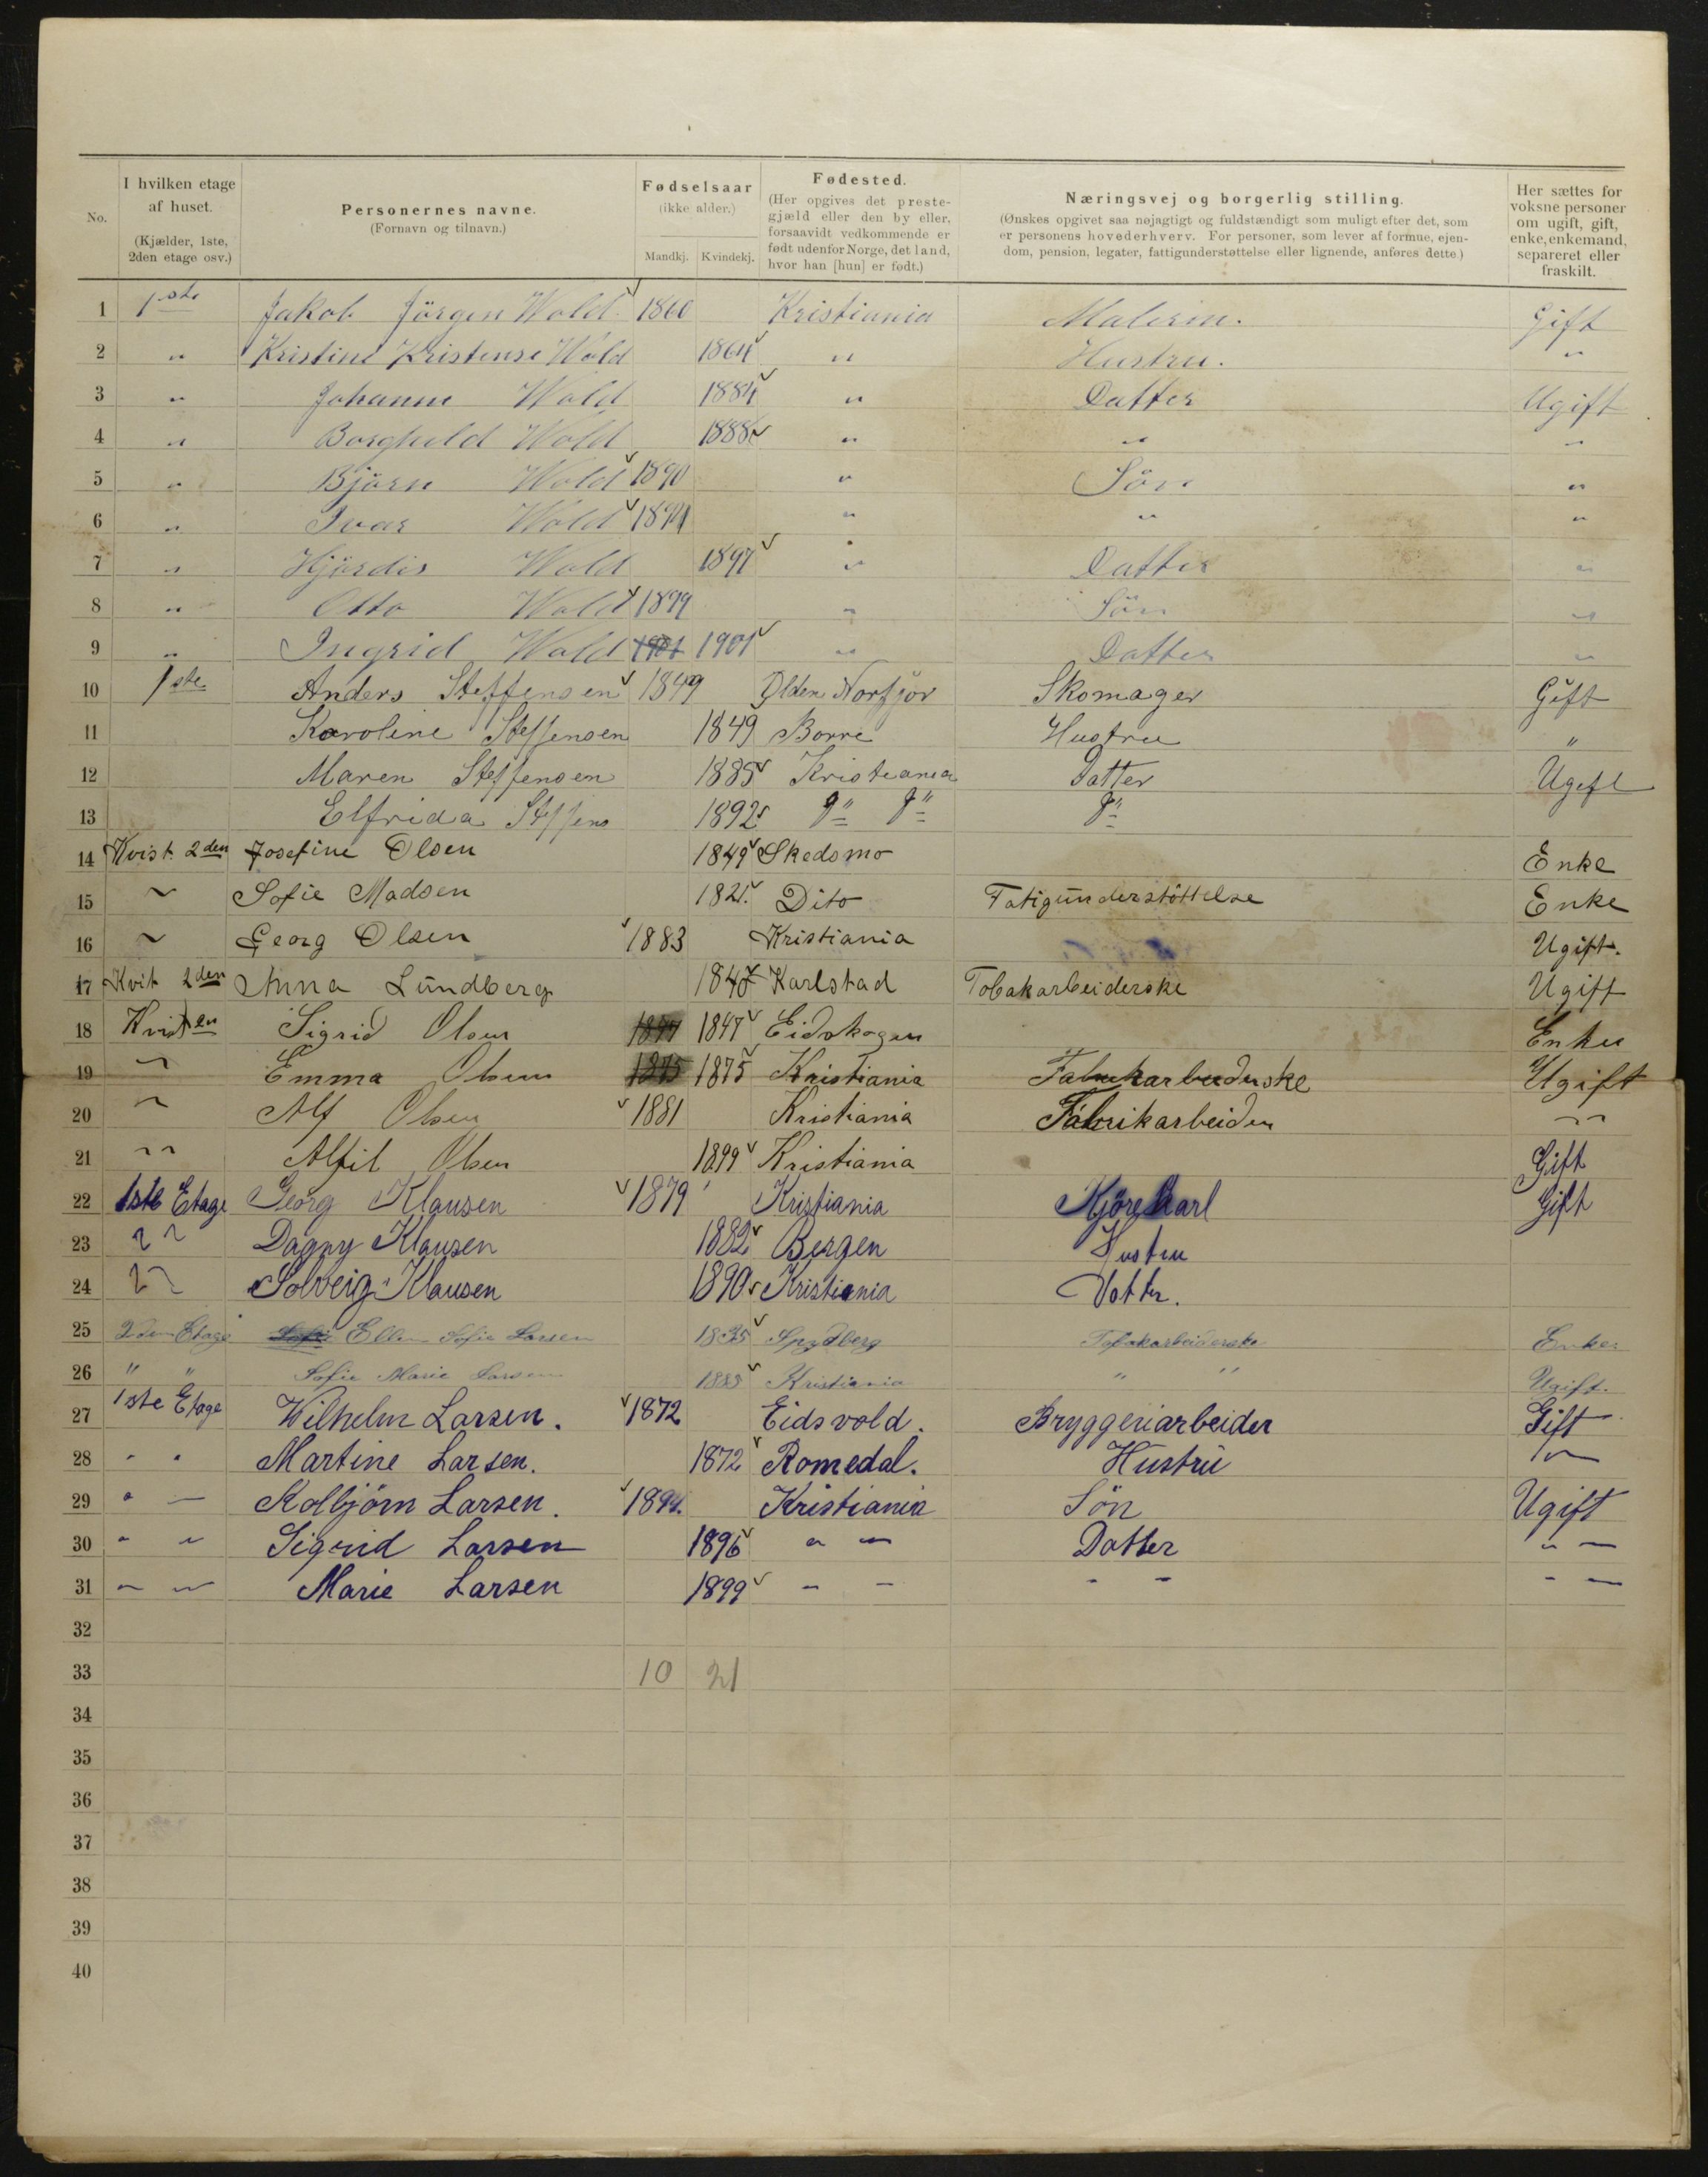 No.
I hvilken etage af huset. (Kjælder, 1ste, 2den etage osv.)
Personernes navne. (Fornavn og tilnavn.)
Fødselsaar (ikke alder.) Mandkj. Kvindekj.
Fødested. (Her opgives det prestegjæld eller den by eller, forsaavidt vedkommende er født udenfor Norge, det land, hvor han [hun] er født.)
Næringsvej og borgerlig stilling. (Ønskes opgivet saa nøjagtigt og fuldstændigt som muligt efter det, som er personens hovederhverv. For personer, som lever af formue, ejendom, pension, legater, fattigunderstøttelse eller lignende, anføres dette.)
Her sættes for voksne personer om ugift, gift, enke, enkemand, separeret eller fraskilt.
1 1ste Jakob Jörgen Wold 1860 Kristiania Gift
2 " Kristine Kristense Wold 1864 " Hustru. "
3 " Johanne Wold 1884 " Datter Ugift
4 " Borghild Wold 1888 " " "
5 " Björn Wold 1890 " Sön "
6 " Ivar Wold " " "
7 " Hjördis Wold 1897 " Datter "
8 " Otto Wold 1899 " Sön "
9 " Ingrid Wold 1901 1901 " Datter "
10 1ste Anders Steffensen 1849 Olden Norfjör Skomager Gift
11 Karoline Steffensen 1849 Borre Hustru "
12 Maren Steffensen 1885 Kristiania Datter Ugift
13 Elfrida Steffens 1892 d" d" d"
14 Kvist 2den Josefine Olsen 1849 Skedsmo Enke
15 ~ Sofie Madsen 1821. Dito Fatigunderstöttelse Enke
16 ~ Georg Olsen 1883 Kristiania Ugift.
17 Kvit 2den Anna Lundberg Karlstad Tobakarbeiderske Ugift
18 Kvisten Sigrid Olsen 1847 1847 Eidskogen Enke
19 " Emma Olsen 1875 1875 Kristiania Fabrikarbeiderske Ugift
20 " Alf Olsen 1881 Kristiania Fabrikarbeider "
21 " Olsen 1899 Kristiania Gift
22 1ste Etage Georg Klausen 1879 Kristiania Kjörekarl Gift
23 " " Dagny Klausen 1882 Bergen Hustru
24 " " Solveig Klausen 1890 Kristiania Dotter.
25 2den Etage Sofie Ellen Sofie Larsen 1835 Spydberg Tobakarbeiderske Enke
26 " " Sofie Marie Larsen Kristiania " " Ugift.
27 1ste Etage Wilhelm Larsen. 1872 Eidsvold. Bryggeriarbeider Gift
28 " " Martine Larsen. 1872 Romedal. Hustru "
29 " " Kolbjörn Larsen. 1894. Kristiania Sön Ugift
30 " " Sigrid Larsen 1896 " " Datter " "
31 " " Marie Larsen 1899 " " " " " "
32
33 10 21
34
35
36
37
38
39
40